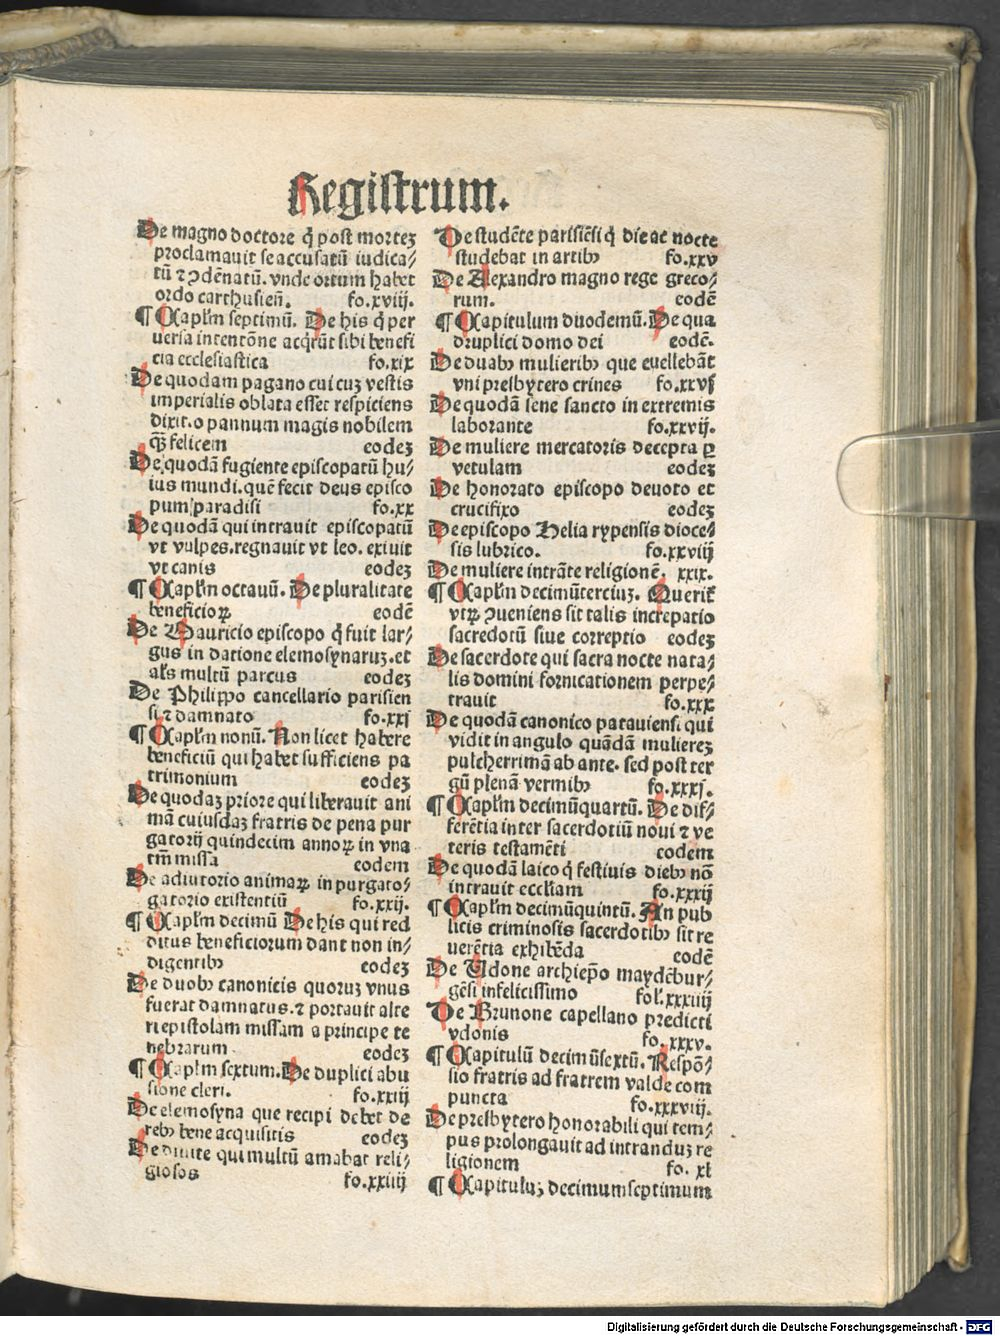 Registrum.
De magno doctore q̇ post mortez
proclamauit se accusatū iudica⸗
tū ⁊ ꝯdēnatū. vnde ortum habet
ordo carthusieñ. fo.xviij.
¶ Capłm septimū. De his q̇ per
uersa intentōne acq̇rūt sibi benefi
cia ecclesiastica fo.xix
De quodam pagano cui cuȝ vestis
imperialis oblata esset respiciens
dixit.o pannum magis nobilem
q̄ȝ felicem eodeȝ
De quodā fugiente episcopatū hu⸗
ius mundi.quē fecit deus episco
pum paradisi fo.xx
De quodā qui intrauit episcopatū
vt vulpes.regnauit vt leo. exiuit
vt canis eodeȝ
¶ Capłm octauū. De pluralitate
beneficioꝝ eodē
De Mauricio episcopo q̇ fuit lar⸗
gus in datione elemosynaruȝ.et
als multū parcus eodeȝ
De Philippo cancellario parisien
si ⁊ damnato fo.xxj
¶ Capłm nonū. Non licet habere
beneficiū qui habet sufficiens pa
trimonium eodeȝ
De quodaȝ priore qui liberauit ani
mā cuiusdaȝ fratris de pena pur
gatorij quindecim annoꝝ in vna
tm̄ missa eodem
De adiutorio animaꝝ in purgato⸗
gatorio existentiū fo.xxij.
¶ Capłm decimū De his qui red
ditus beneficiorum dant non in⸗
digentibꝫ eodeȝ
De duobꝫ canonicis quoruȝ vnus
fuerat damnatus.⁊ portauit alte
ri epistolam missam a principe te
nebrarum eodeȝ
¶ Capłm sextum. De duplici abu
sione cleri. fo.xxiij
De elemosyna que recipi debet de
rebꝫ bene acquisitis eodeȝ
De diuite qui multū amabat reli⸗
giosos fo.xxiiij
De studēte parisiēsi q̇ die ac nocte
studebat in artibꝫ fo.xxv
De Alexandro magno rege greco⸗
rum. eodē
¶ Capitulum duodemū. De qua
druplici domo dei eodē.
De duabꝫ mulieribꝫ que euellebāt
vni presbytero crines fo.xxvj
De quodā sene sancto in extremis
laborante fo.xxvij.
De muliere mercatoris decepta ꝑ
vetulam eodeȝ
De honorato episcopo deuoto et
crucifixo eodeȝ
De episcopo Helia rypensis dioce⸗
sis lubrico. fo.xxviij
De muliere intrāte religionē. xxix.
¶ Capłm decimūterciuȝ. Querit᷑
vtꝝ ꝯueniens sit talis increpatio
sacredotū siue correptio eodeȝ
De sacerdote qui sacra nocte nata⸗
lis domini fornicationem perpe⸗
trauit fo.xxx
De quodā canonico patauiensi qui
vidit in angulo quādā muliereȝ
pulcherrimā ab ante. sed post ter
gū plenā vermibꝫ fo.xxxj.
¶ Capłm decimūquartū. De dif⸗
ferētia inter sacerdotiū noui ⁊ ve
teris testamēti codem
De quodā laico q̇ festiuis diebꝫ nō
intrauit eccliam fo.xxxij
¶ Capłm decimūquintū. An pub
licis criminosis sacerdotibꝫ sit re
uerētia exhibēda eodē
De Udone archiepo maydēbur⸗
gēsi infelicissimo fol.xxxiiij
De Brunone capellano predicti
vdonis fo. xxxv.
¶ Capitulū decimūsextū. Respō⸗
sio fratris ad fratrem valde com
puncta fo.xxxviij.
De presbytero honorabili qui tem⸗
pus prolongauit ad intranduȝ re
ligionem fo. xl
¶ Capituluȝ decimumseptimum
Digitalisierung gefördert durch die Deutsche Forschungsgemeinschaft - DFG